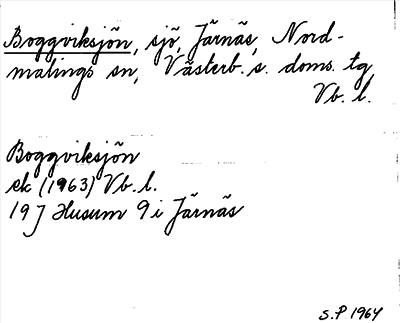 Boggviksjön, sjö, Järnäs, Nord-
malings sn, Västerb. s. doms. tg,
Vb. l.
Boggviksjön
ek (1963) Vb. l.
19 J Husum 9 i Järnäs
S.P 1964